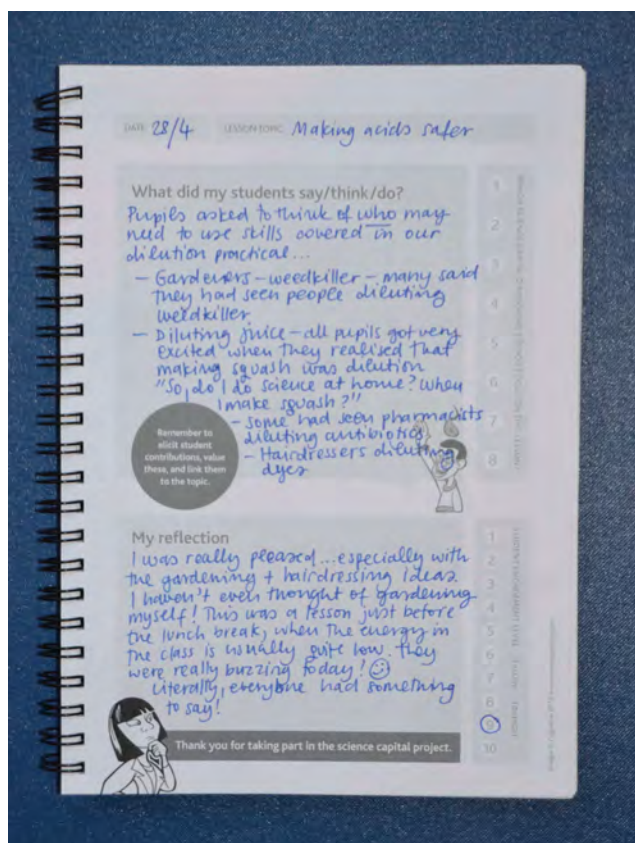 DATE: 28/4 LESSON TOPIC: Making acids safer
What did my students say/think/do?
Pupils asked to think of who may
need to use skills covered in our
dilution practical...
– Gardeners – weedkiller – many said
they had seen people diluting
weedkiller
– Diluting juice – all pupils got very
excited when they realised that
making squash was dilution
"So, do I do science at home? When
I make squash?"
– Some had seen pharmacists
diluting antibiotics
– Hairdressers diluting
dyes
Remember to
elicit student
contributions, value
these, and link them
to the topic.
1
2
3
4
5
6
7
8
My reflection
I was really pleased...especially with
the gardening + hairdressing ideas.
I haven't even thought of gardening
myself! This was a lesson just before
the lunch break, when the energy in
the class is usually quite low. They
were really buzzing today! ☺
Literally, everyone had something
to say!
1
2
3
4
5
6
7
8
9
10
Thank you for taking part in the science capital project.